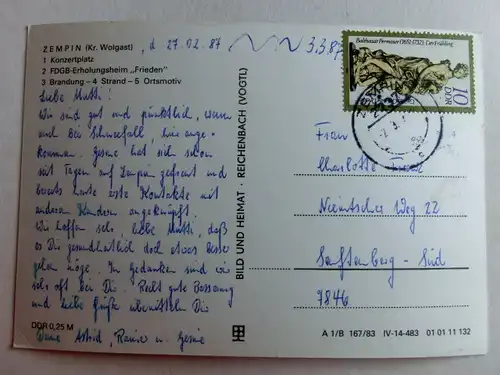 ZEMPIN (Kr. Wolgast) , d 27.02.87 3.3.87
1 Konzertplatz
2 FDGB-Erholungsheim „Frieden"
3 Brandung – 4 Strand – 5 Ortsmotiv
Liebe Mutti!
Wir sind gut und pünktlich, wenn
auch bei Schneefall hier ange-
kommen. Gesine hat sich schon
seit Tagen auf Zempin gefreut und
bereits heute erste Kontakte mit
anderen Kindern angeknüpft.
Wir hoffen sehr, liebe Mutti, daß
es Dir gesundheitlich doch etwas besser
gehen möge. In Gedanken sind wir
sehr oft bei Dir. Recht gute Besserung
und liebe Grüße übermitteln Dir
Deine Astrid, Rainer u. Gesine
DDR 0,25 M
BILD UND HEIMAT · REICHENBACH (VOGTL)
Balthasar Permoser (1651-1732), Der Frühling
10
DDR
ZEMPIN
Frau
Charlotte
Weg 22
Senftenberg - Süd
7846
A 1/B 167/83 IV-14-483 01 01 11 132